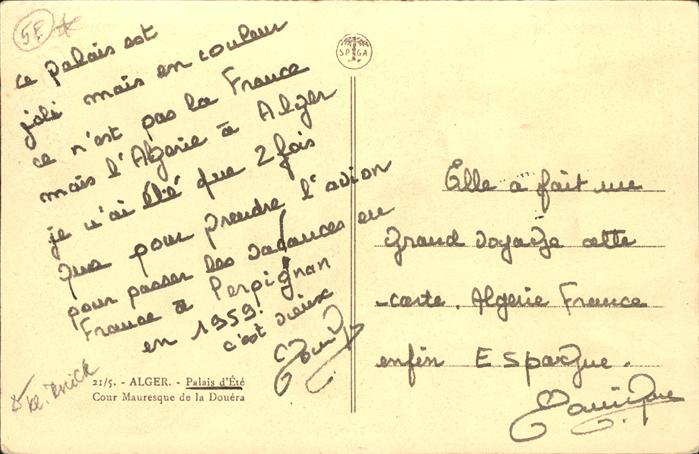 5F
ce palais est
joli mais en couleur
ce n'est pas la France
mais l'Algerie à Alger
je n'ai été que 2 fois
que pour prendre l'avion
pour passer les vacances en
France à Perpignan
en 1959.
c'est vieux
21/5. - ALGER. - Palais d'Été
Cour Mauresque de la Douéra
SPGA
Elle a fait une
grand voyage cette
carte. Algerie France
enfin ESpagne.